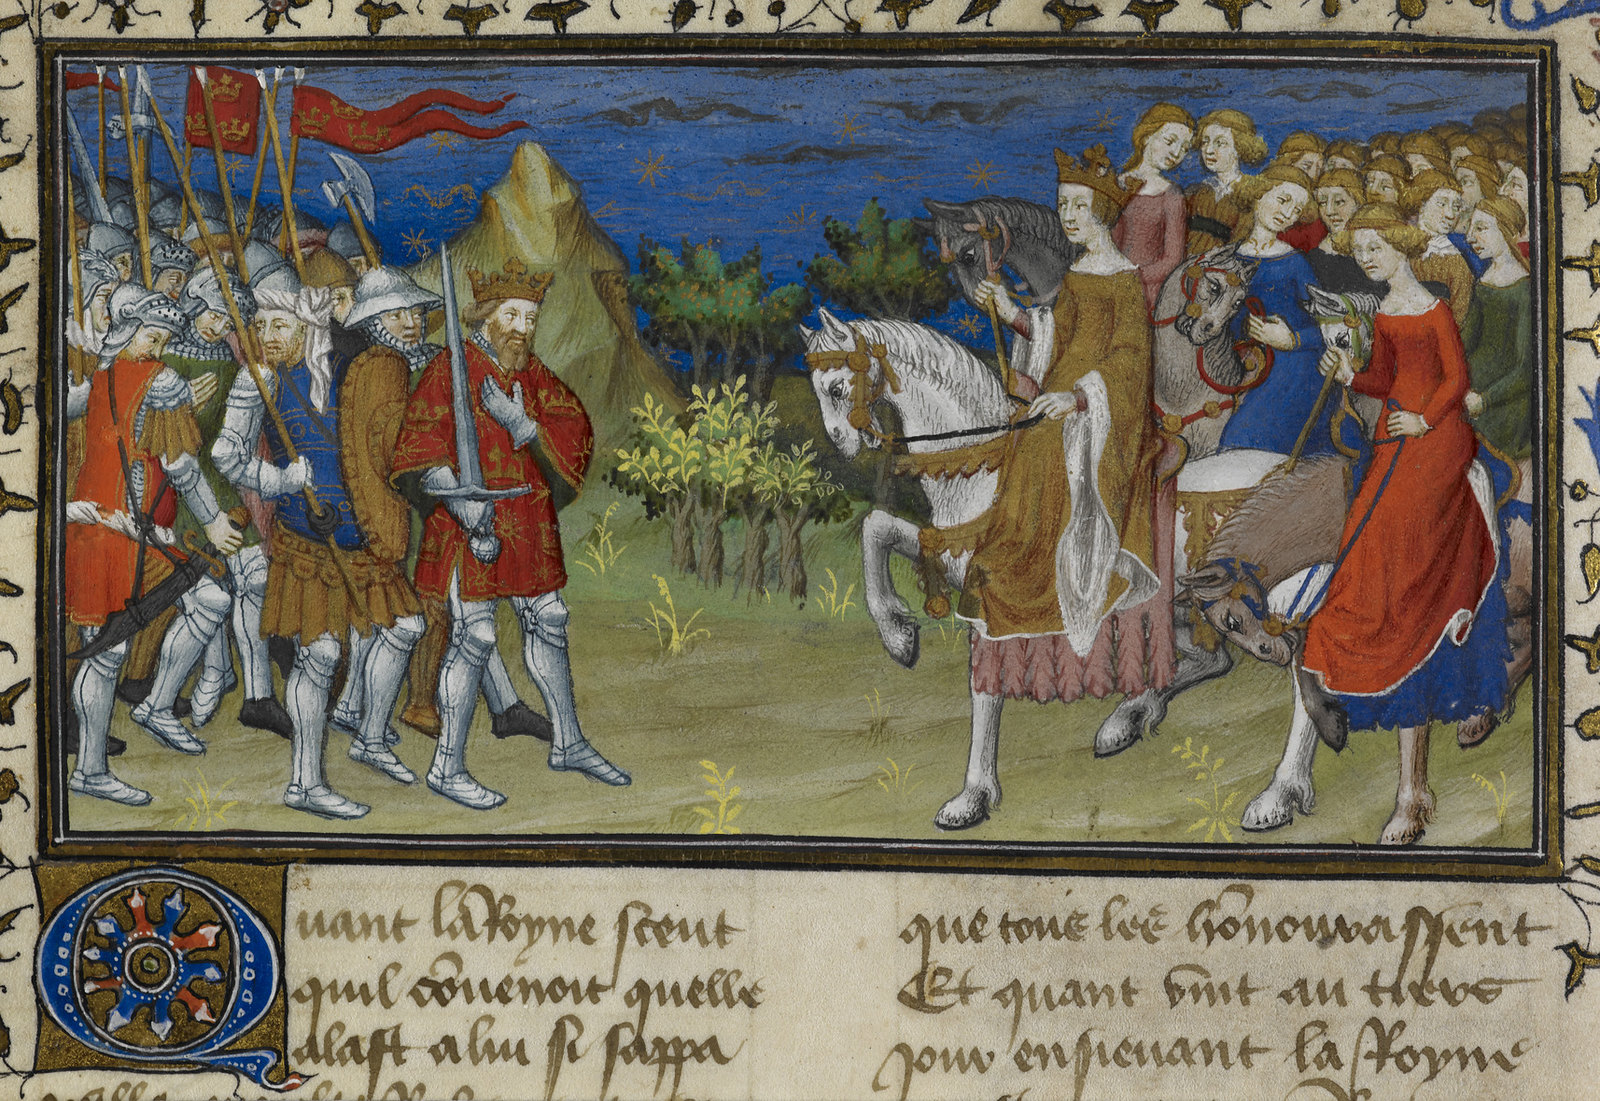 Quant la Royne sceut
quil cōuenoit quelle
alast a lui si sappa
que tous les hōnourassent
Et quant vīnt au tiers
jour ensieuant la Royne